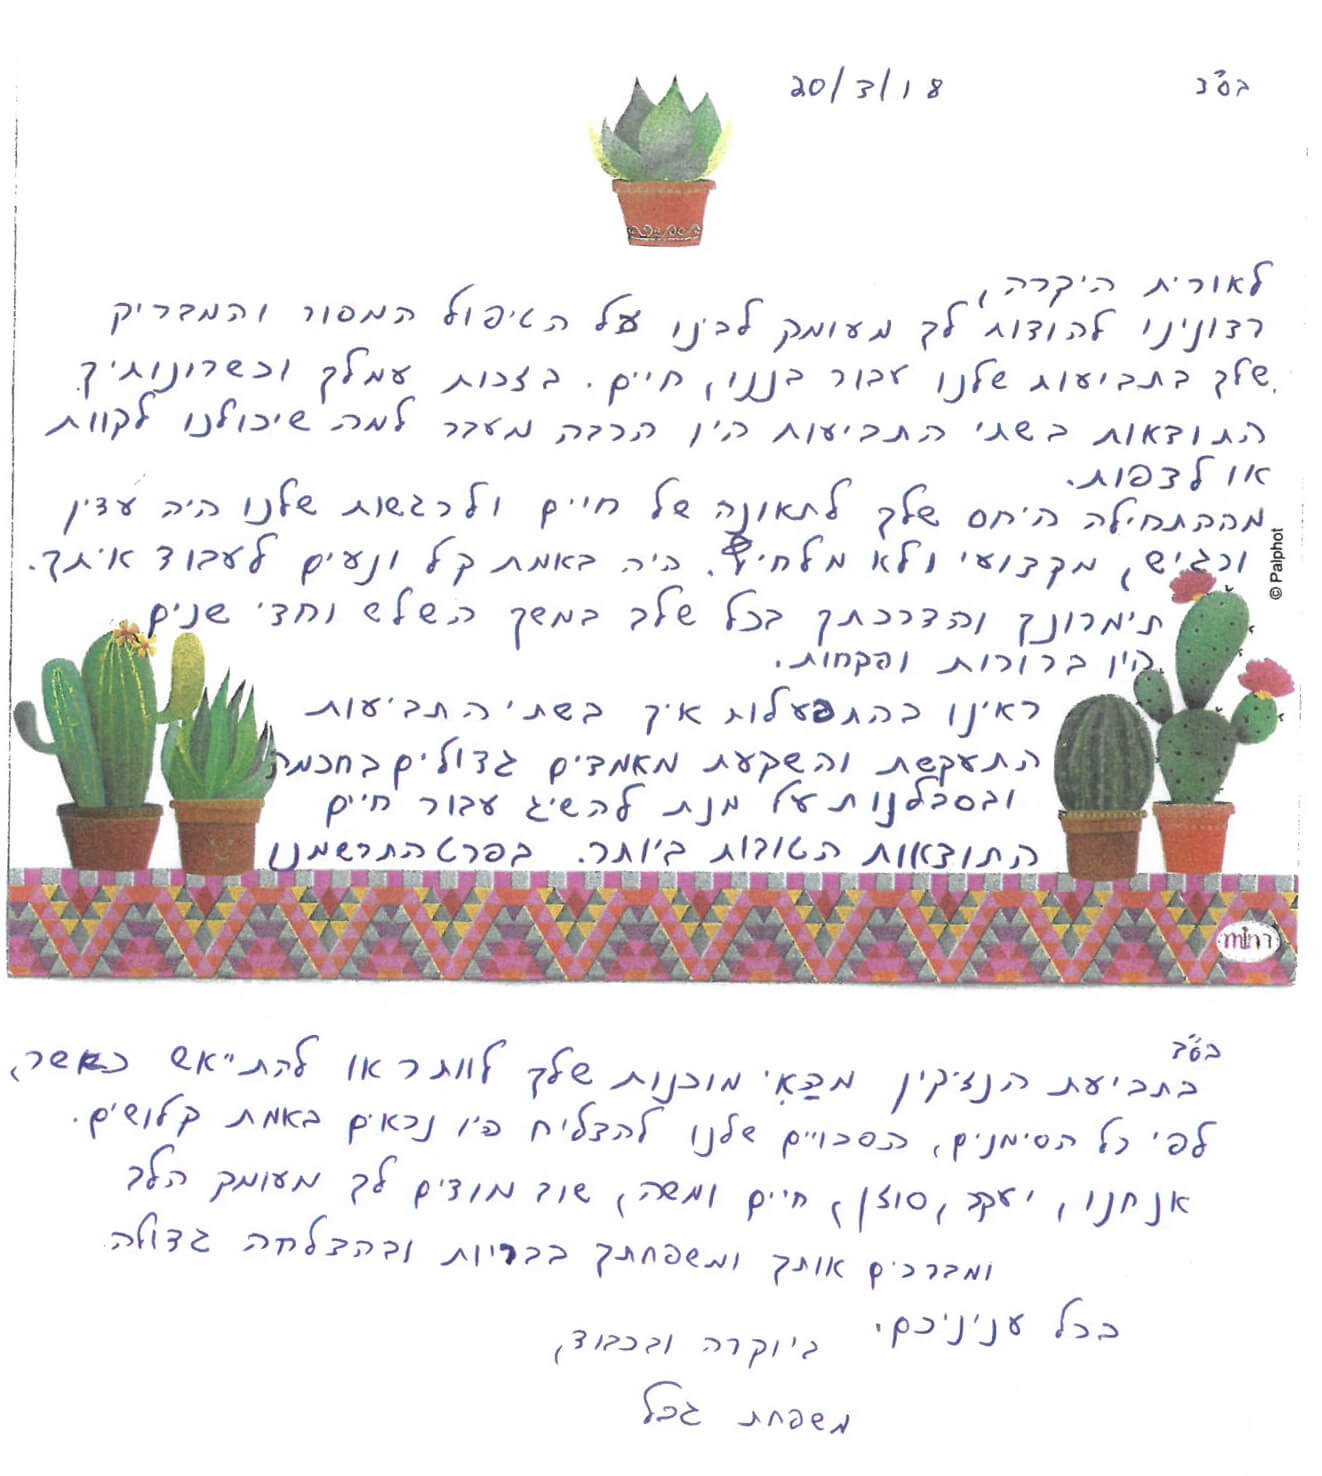 בס"ד
20/3/18
לאורית היקרה,
רצונינו להודות לך מעומק לבינו על הטיפול המסור והמבריק
שלך בתביעות שלנו עבור בננו, חיים. בזכות עמלך וכשרונותיך
התוצאות בשתי התביעות היו הרבה מעבר למה שיכולנו לקוות
או לצפות.
מההתחילה היחס שלך לתאונה של חיים ולרגשות שלנו היה עדין
ורגיש, מקצועי ולא מלחיץ. היה באמת קל ונעים לעבוד איתך.
תימרונך והדרכתך בכל שלב במשך השלש וחצי שנים
היו ברורות ופקחות.
ראינו בהתפעלות איך בשתי התביעות
התעקשת והשקעת מאמצים גדולים בחכמה
ובסבלנות על מנת להשיג עבור חיים
התוצאות הטובות ביותר. בפרט התרשמנו
© Palphot
בס"ד
בתביעת הנזיקין מבאי מוכנות שלך לוותר או להתייאש כאשר,
לפי כל הסימנים, הסכויים שלנו להצליח היו נראים באמת קלושים.
אנחנו, יעקב, סוזן, חיים ומשה, שוב מודים לך מעומק הלב
ומברכים אותך ומשפחתך בבריות ובהצלחה גדולה
בכל עניניכם.
ביוקרה ובכבוד,
משפחת גבל